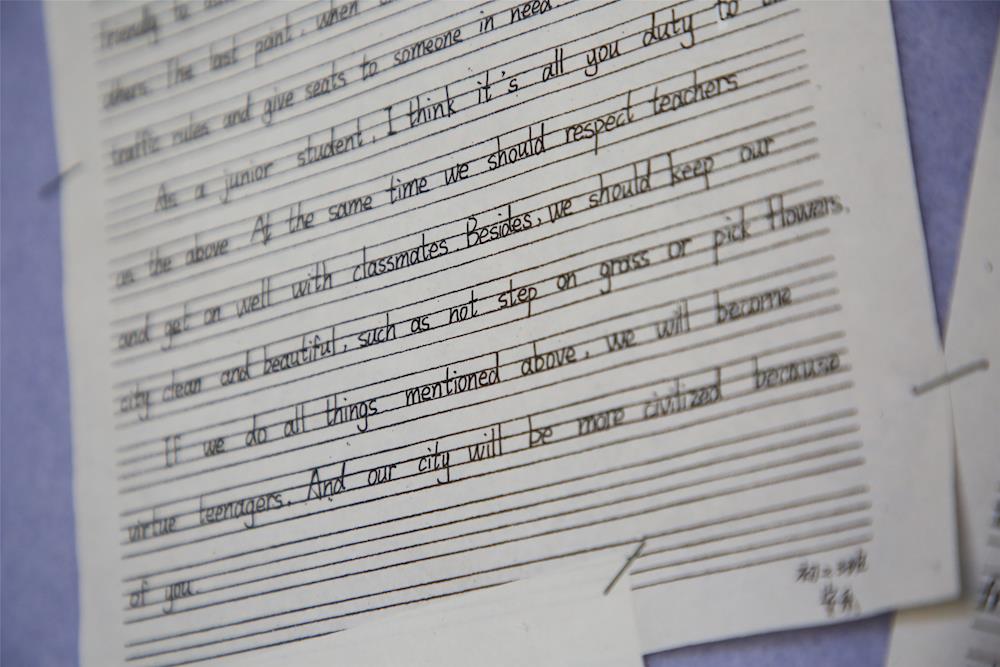 friendly to
others. The last point, when
traffic rules and give seats to someone in need.
As a junior student, I think it's all you duty to
as the above. At the same time we should respect teachers
and get on well with classmates. Besides, we should keep our
city clean and beautiful, such as not step on grass or pick flowers.
If we do all things mentioned above, we will become
virtue teenagers. And our city will be more civilized because
of you.